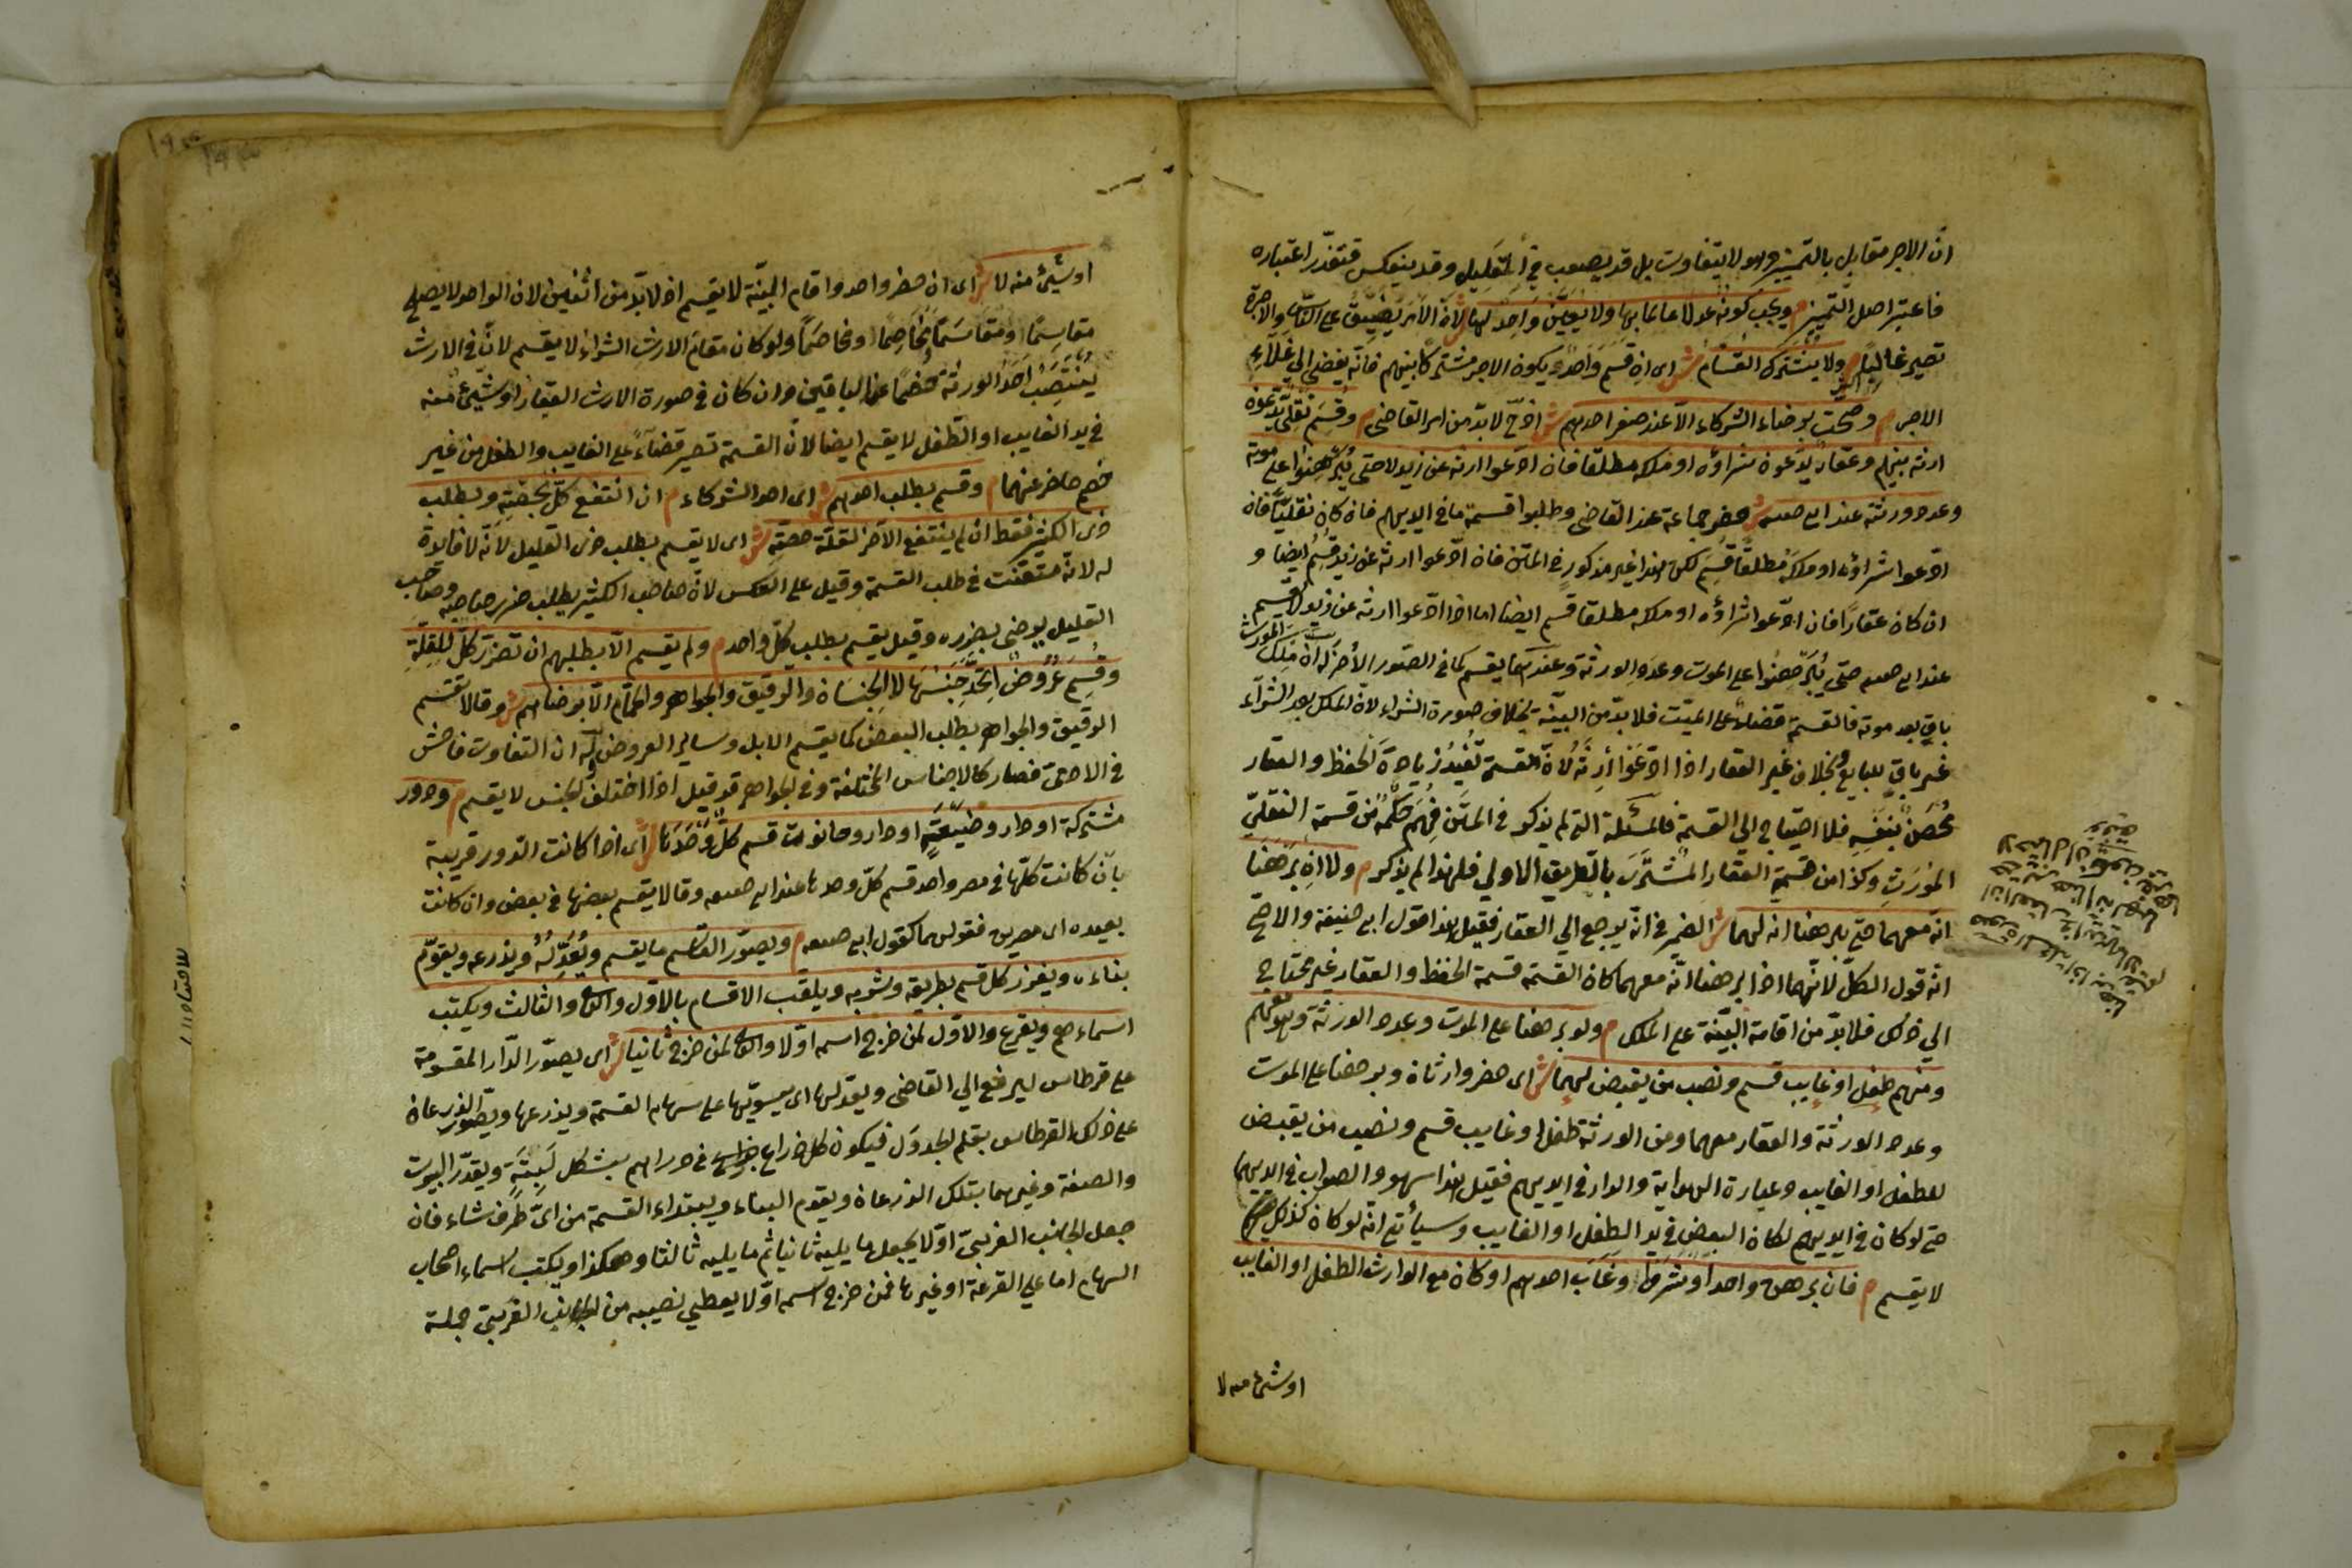 انّ الاجر مقابل بالتميز وهو لا يتفاوت بل قد يصعب في القليل وقد ينعكس فتعذّر اعتباره
فاعتبر اصل التميز م ويجب كونه عدلا عالما بها ولا يعيّن واحد لها ش لانّ الامر يضيق على الناس والاجرة
تصير غالية م ولا يشترك القسّام ش اى ان قسم واحد ويكون الاجر مشتركا بينهم فانّه يفضى الي غلاء
الاجر م وصحّت برضاء الشركاء الّا عند صغر احدهم ش اذ ح لا بدّ من امر القاضى م وقسم نقليّ يدّعون
ارثه بينهم وعقار يدّعون شراؤه او ملكه مطلقا فان ادّعوا ارثه عن زيد لا حتى يبرهنوا على موته
وعدد ورثته عند ابى ح ش حضر جماعة عند القاضى وطلبوا قسمة ما فى ايديهم فان كان نقليّا فان
ادّعوا شراؤه او ملكه مطلقا قسم لكن هذا غير مذكور فى المتن فان ادّعوا ارثه عن زيد قسم ايضا و
ان كان عقارا فان ادّعوا شراؤه او ملكه مطلقا قسم ايضا اما اذا ادّعوا ارثه عن زيد لا يقسم
عند ابى ح حتى يبرهنوا على الموت وعدد الورثة وعندهما يقسم كما فى الصور الأخر له ان ملك المورث
باق بعد موته فالقسمة قضاء على الميّت فلا بدّ من البيّنة بخلاف صورة الشراء لانّ الملك بعد الشراء
غير باق للبايع وبخلاف غير العقار اذا ادّعوا ارثه لانّ القسمة تفيد زيادة الحفظ والعقار
محصن بنفسه فلا احتياج الي القسمة فالمسئلة التى لم يذكر فى المتن فهم حكمه من قسمة النقليّ
المورث وكذا من قسمة العقار المشترى بالطريق الاولي فلهذا لم يذكر م ولا ان برهنا
انّه معهما حتى يبرهنا انه لهما ش الضمير فى انّه يرجع الي العقار فقيل هذا قول ابى حنيفة والاصح
انّه قول الكلّ لانّهما اذا برهنا انّه معهما كان القسمة قسمة الحفظ والعقار غير محتاج
الي ذلك فلا بدّ من اقامة البيّنة على الملك م ولو برهنا على الموت وعدد الورثة وهو معهم
ومنهم طفل او غايب قسم ونصب من يقبض لهما ش اى حضر وارثان وبرهنا على الموت
وعدد الورثة والعقار معهما ومن الورثة طفل او غايب قسم ونصب من يقبض
للطفل او الغايب وعبارة الهداية والدار فى ايديهم فقيل هذا سهو والصواب فى ايديهما
حتى لو كان فى ايديهم لكان البعض فى يد الطفل او الغايب وسيأتى انّه لو كان كذلك
لا يقسم م فان برهن واحد او شروا وغاب احدهم او كان مع الوارث الطفل او الغايب
او شئ منه لا
او شئ منه لا ش اى ان حضر واحد واقام البيّنة لا يقسم اذ لا بدّ من اثنين لان الواحد لا يصلح
مقاسما ومقاسما ومخاصما ومخاصما ولو كان مقام الارث الشراء لا يقسم لانّ فى الارث
ينتصب احد الورثة خصما عن الباقين وان كان فى صورة الارث العقار او شئ منه
فى يد الغايب او الطفل لا يقسم ايضا لانّ القسمة تصير قضاء على الغايب والطفل من غير
خصم حاضر عنهما م وقسم بطلب احدهم ش اى احد الشركاء م ان انتفع كلّ بحصّته وبطلب
ذى الكثير فقط ان لم ينتفع الآخر لقلّة حصته ش اى لا يقسم بطلب ذى القليل لانّه لا فايدة
له لانه متعنّت فى طلب القسمة وقيل على العكس لانّ صاحب الكثير يطلب ضرر صاحبه وصاحب
القليل يرضى بضرره وقيل يقسم بطلب كلّ واحد م ولم يقسم الّا بطلبهم ان تضرّر كلّ للقلّة
وقسم عروض اتّحد جنسها لا الجنسان والرقيق والجواهر والحمّام الّا برضاهم ش وقالا يقسم
الرقيق والجواهر بطلب البعض كما يقسم الابل وساير العروض له ان التفاوت فاحش
فى الادمى فصار كالاجناس المختلفة وفى الجواهر قد قيل اذا اختلف الجنس لا يقسم م ودور
مشتركة او دار وضيعة او دار وحانوت قسم كلّ وحدها ش اى اذا كانت الدور قريبة
بان كانت كلّها فى مصر واحد قسم كلّ وحدها عند ابى ح وقالا يقسم بعضها فى بعض وان كانت
بعيدة اى مصرين فقولهما كقول ابى ح م ويصوّر القاسم ما يقسم ويعدّله ويذرعه ويقوّم
بناءه ويفرز كل قسم بطريقه وشربه ويلقب الاقسام بالاول والثانى والثالث ويكتب
اسماءهم ويقرع والاول لمن خرج اسمه اوّلا والثانى لمن خرج ثانيا ش اى يصوّر الدّار المقسومة
على قرطاس ليرفع الي القاضى ويعدلها اى يسوّيها على سهام القسمة ويذرعها ويصوّر الذرعان
على ذلك القرطاس بقلم الجدول فيكون كل ذراع فى ذراع بشكل لبنة ويقدّر البيوت
والصفة وغيرهما بتلك الذرعان ويقوم البناء ويبتداء القسمة من اىّ طرف شاء فان
جعل الجانب الغربىّ اوّلا يجعل ما يليه ثانيا ثم ما يليه ثالثا وهكذا ويكتب اسماء اصحاب
السهام اما على القرعة او غيرها فمن خرج اسمه اوّلا يعطي نصيبه من الجانب الغربىّ جملة